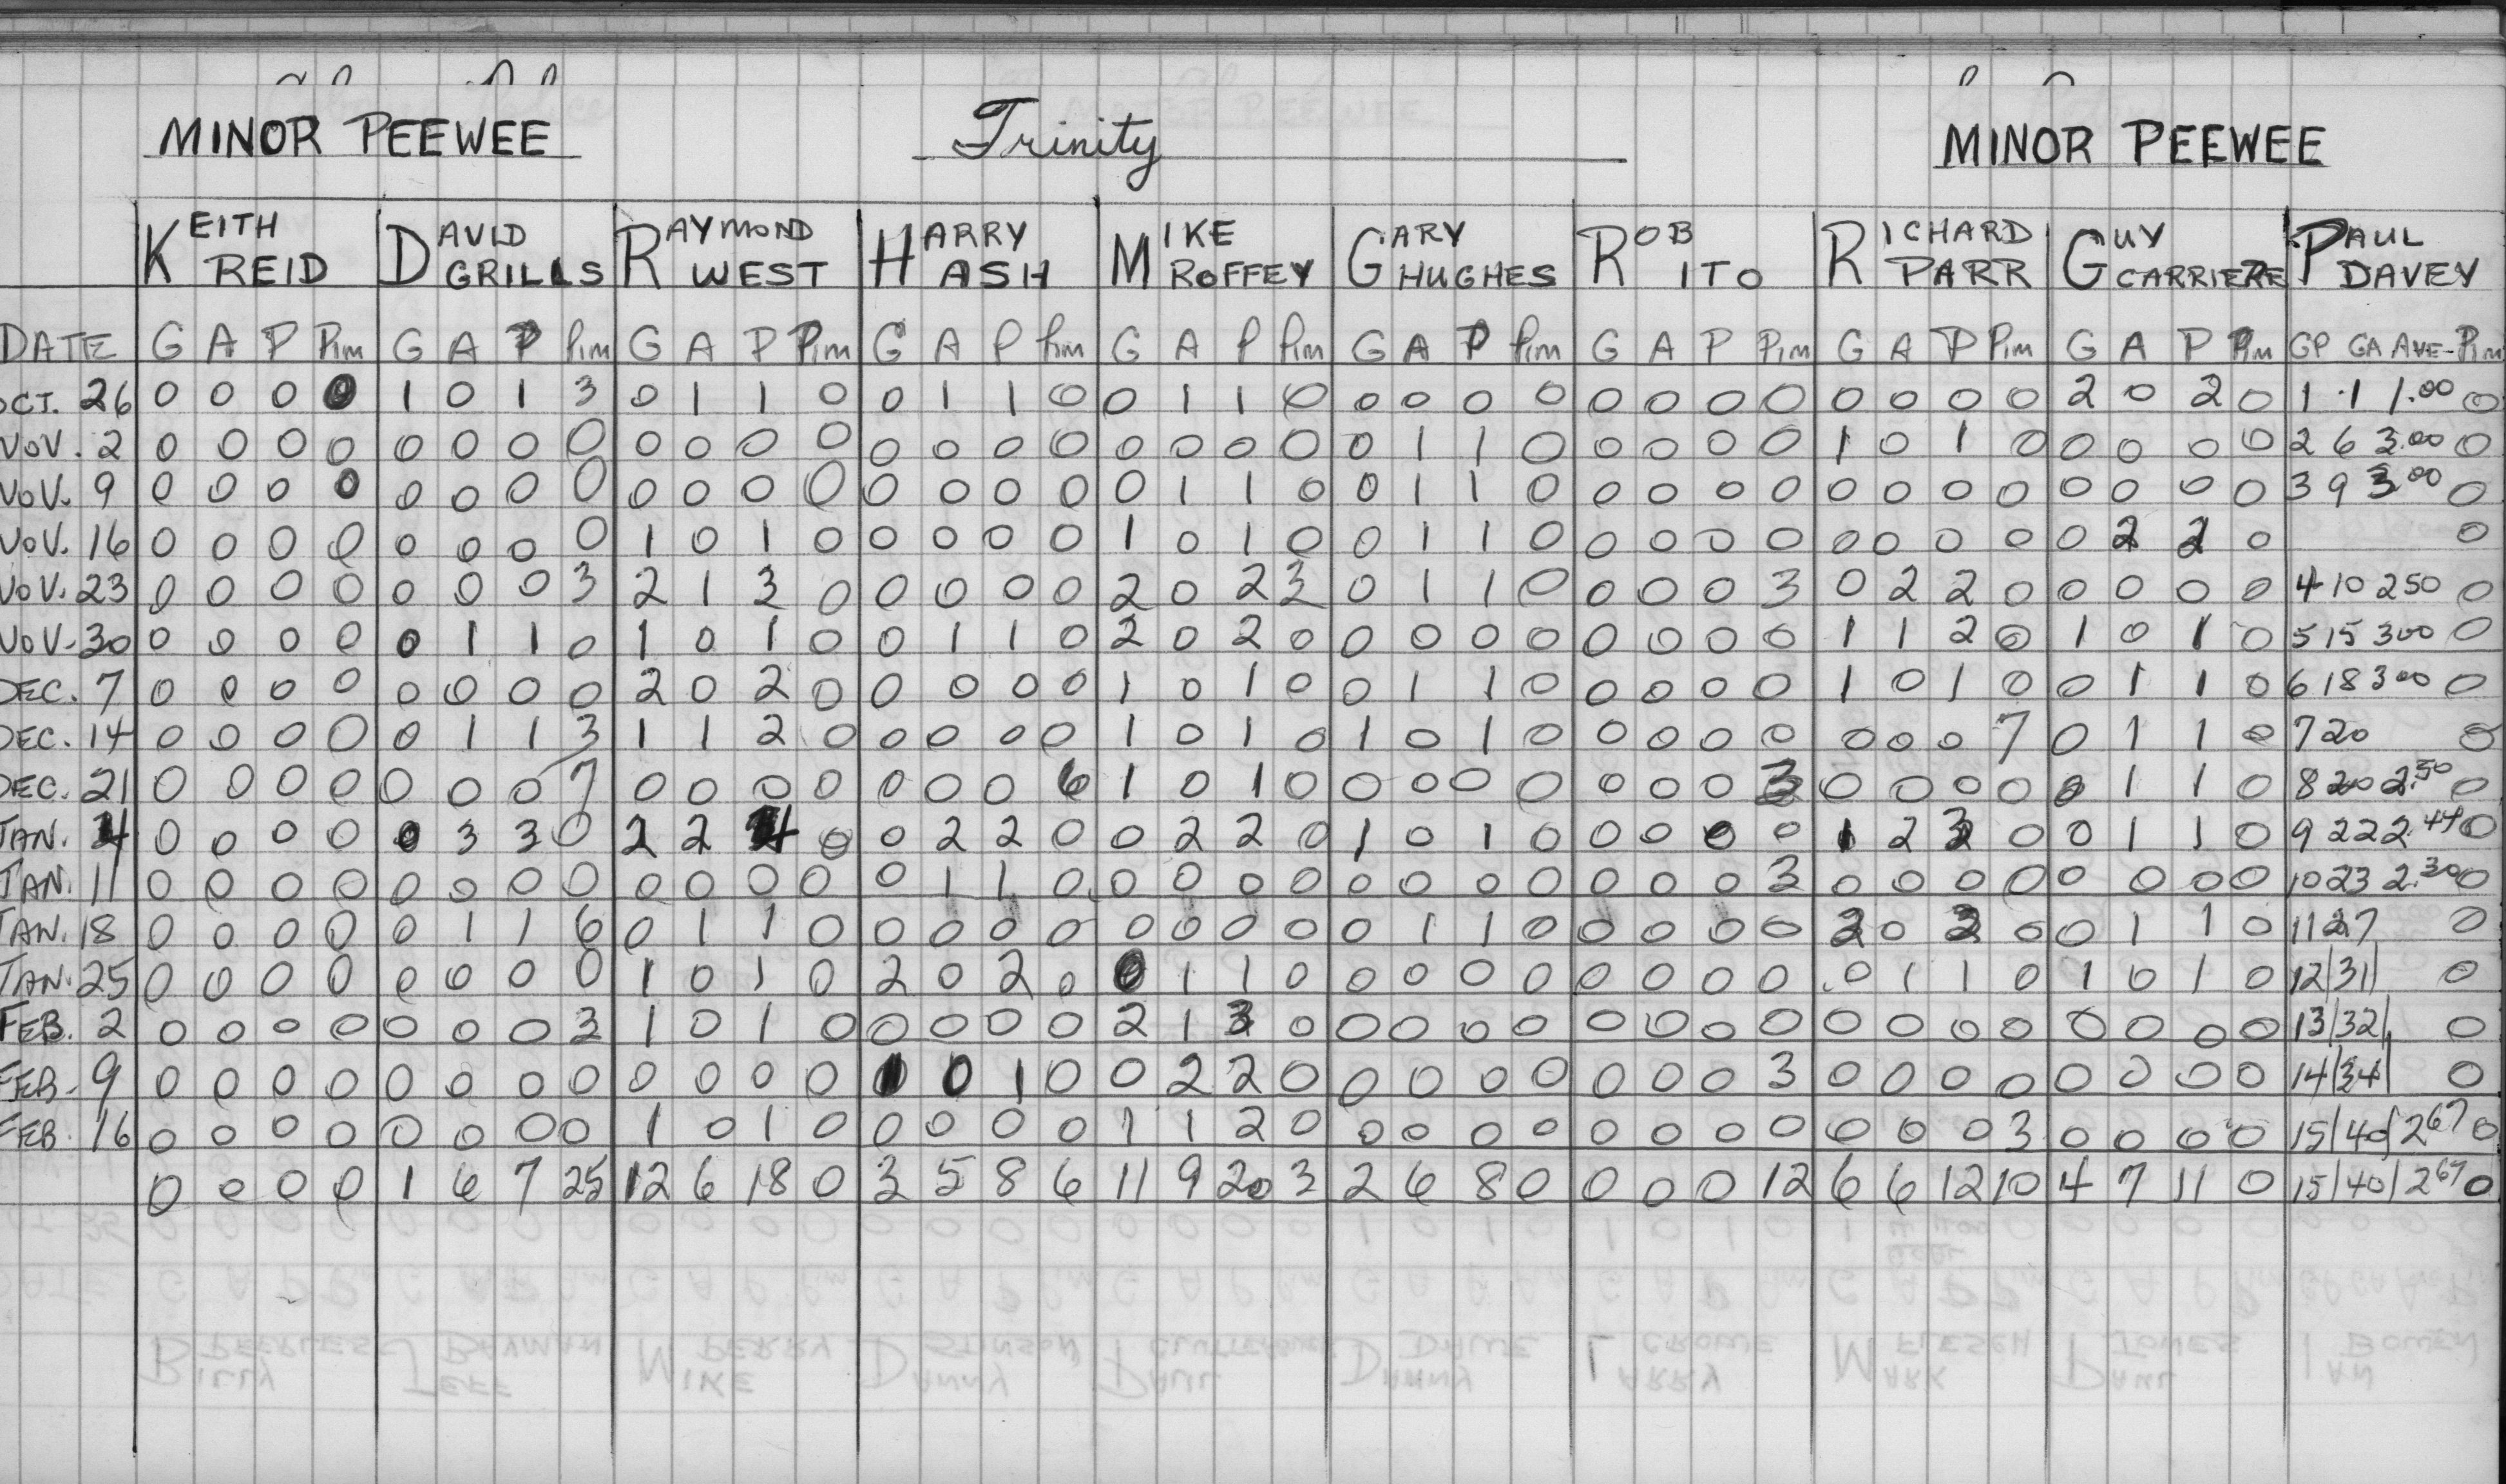 MINOR PEEWEE Trinity MINOR PEEWEE
KEITH REID DAVID GRILLS RAYMOND WEST HARRY ASH MIKE ROFFEY GARY HUGHES ROB ITO RICHARD PARR GUY CARRIERE PAUL DAVEY
DATE G A P Pim G A P Pim G A P Pim G A P Pim G A P Pim G A P Pim G A P Pim G A P Pim G A P Pim GP GA AVE- Pim
OCT. 26 0 0 0 0 1 0 1 3 0 1 1 0 0 1 1 0 0 1 1 0 0 0 0 0 0 0 0 0 0 0 0 0 2 0 2 0 1 1 1.00 0
NOV. 2 0 0 0 0 0 0 0 0 0 0 0 0 0 0 0 0 0 0 0 0 0 1 1 0 0 0 0 0 1 0 1 0 0 0 0 0 2 6 3.00 0
NOV. 9 0 0 0 0 0 0 0 0 0 0 0 0 0 0 0 0 0 1 1 0 0 1 1 0 0 0 0 0 0 0 0 0 0 0 0 0 3 9 3.00 0
NOV. 16 0 0 0 0 0 0 0 0 1 0 1 0 0 0 0 0 1 0 1 0 0 1 1 0 0 0 0 0 0 0 0 0 0 2 2 0 0
NOV. 23 0 0 0 0 0 0 0 3 2 1 3 0 0 0 0 0 2 0 2 3 0 1 1 0 0 0 0 3 0 2 2 0 0 0 0 0 4 10 250 0
NOV. 30 0 0 0 0 0 1 1 0 1 0 1 0 0 1 1 0 2 0 2 0 0 0 0 0 0 0 0 0 1 1 2 0 1 0 1 0 5 15 300 0
DEC. 7 0 0 0 0 0 0 0 0 2 0 2 0 0 0 0 0 1 0 1 0 0 1 1 0 0 0 0 0 1 0 1 0 0 1 1 0 6 18 300 0
DEC. 14 0 0 0 0 0 1 1 3 1 1 2 0 0 0 0 0 1 0 1 0 1 0 1 0 0 0 0 0 0 0 0 7 0 1 1 0 7 20 0
DEC. 21 0 0 0 0 0 0 0 7 0 0 0 0 0 0 0 6 1 0 1 0 0 0 0 0 0 0 0 3 0 0 0 0 0 1 1 0 8 20 2.50 0
JAN. 4 0 0 0 0 0 3 3 0 2 2 4 0 0 2 2 0 0 2 2 0 1 0 1 0 0 0 0 0 1 2 3 0 0 1 1 0 9 22 2.44 0
JAN. 11 0 0 0 0 0 0 0 0 0 0 0 0 0 1 1 0 0 0 0 0 0 0 0 0 0 0 0 3 0 0 0 0 0 0 0 0 10 23 2.30 0
JAN. 18 0 0 0 0 0 1 1 6 0 1 1 0 0 0 0 0 0 0 0 0 0 1 1 0 0 0 0 0 2 0 2 0 0 1 1 0 11 27 0
JAN. 25 0 0 0 0 0 0 0 0 1 0 1 0 2 0 2 0 0 1 1 0 0 0 0 0 0 0 0 0 0 1 1 0 1 0 1 0 12/31/ 0
FEB. 2 0 0 0 0 0 0 0 3 1 0 1 0 0 0 0 0 2 1 3 0 0 0 0 0 0 0 0 0 0 0 0 0 0 0 0 0 13/32/ 0
FEB. 9 0 0 0 0 0 0 0 0 0 0 0 0 1 0 1 0 0 2 2 0 0 0 0 0 0 0 0 3 0 0 0 0 0 0 0 0 14/34/ 0
FEB. 16 0 0 0 0 0 0 0 0 1 0 1 0 0 0 0 0 1 1 2 0 0 0 0 0 0 0 0 0 0 0 0 3 0 0 0 0 15/40/267 0
0 0 0 0 1 6 7 25 12 6 18 0 3 5 8 6 11 9 20 3 2 6 8 0 0 0 0 12 6 6 12 10 4 7 11 0 15/40/267 0